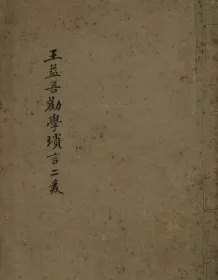 王益吾勸學瑣言二卷